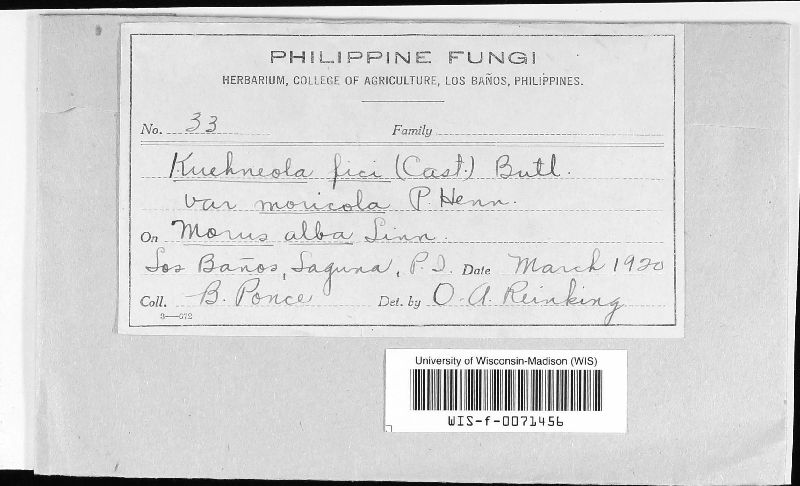 PHILIPPINE FUNGI
HERBARIUM, COLLEGE OF AGRICULTURE, LOS BAÑOS, PHILIPPINES.
No. 33 Family
Kuehneola fici (Cast.) Butl.
var moricola P. Henn.
On Morus alba Linn.
Los Baños, Laguna, P. I. Date March 1920
Coll. B. Ponce Det. by O. A. Reinking
3—672
University of Wisconsin-Madison (WIS)
WIS-f-0071456